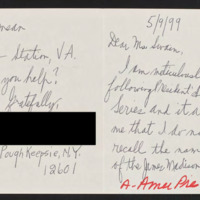 - Station, VA.
you help?
Gratefully,
Poughkeepsie, N.Y.
12601
5/9/99
Dear Ms. Swain,
I am meticulously
following President's
Series and it
me that I do
recall the name
of the James Madison
A-Amer Pres